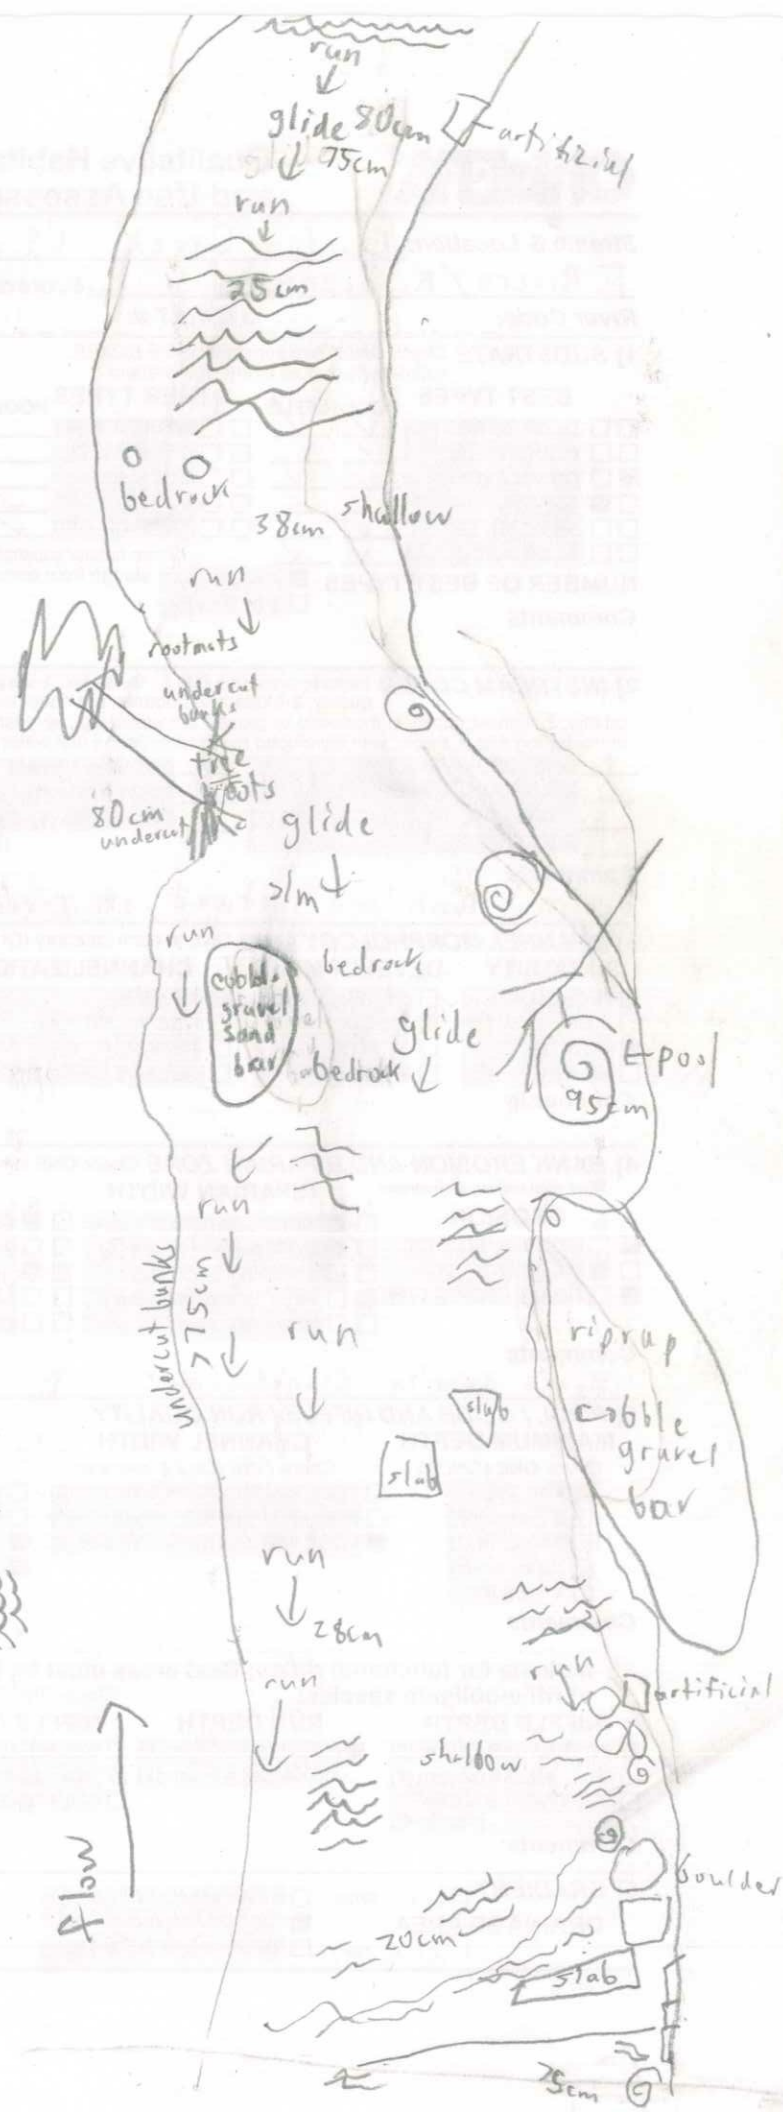 run
glide 80cm
artificial
95cm
run
25cm
bedrock
38cm
shallow
run
rootmats
undercut
banks
tree
roots
80cm
undercut
glide
>1m
run
bedrock
cobble
gravel
sand
bar
glide
bedrock
pool
95cm
run
undercut banks
>75cm
run
riprap
slab
cobble
gravel
bar
slab
run
28cm
run
run
artificial
shallow
flow
boulder
20cm
slab
75cm